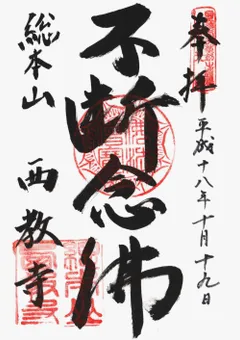 奉拝
平成十八年十月十九日
不断念佛
総本山
西教寺